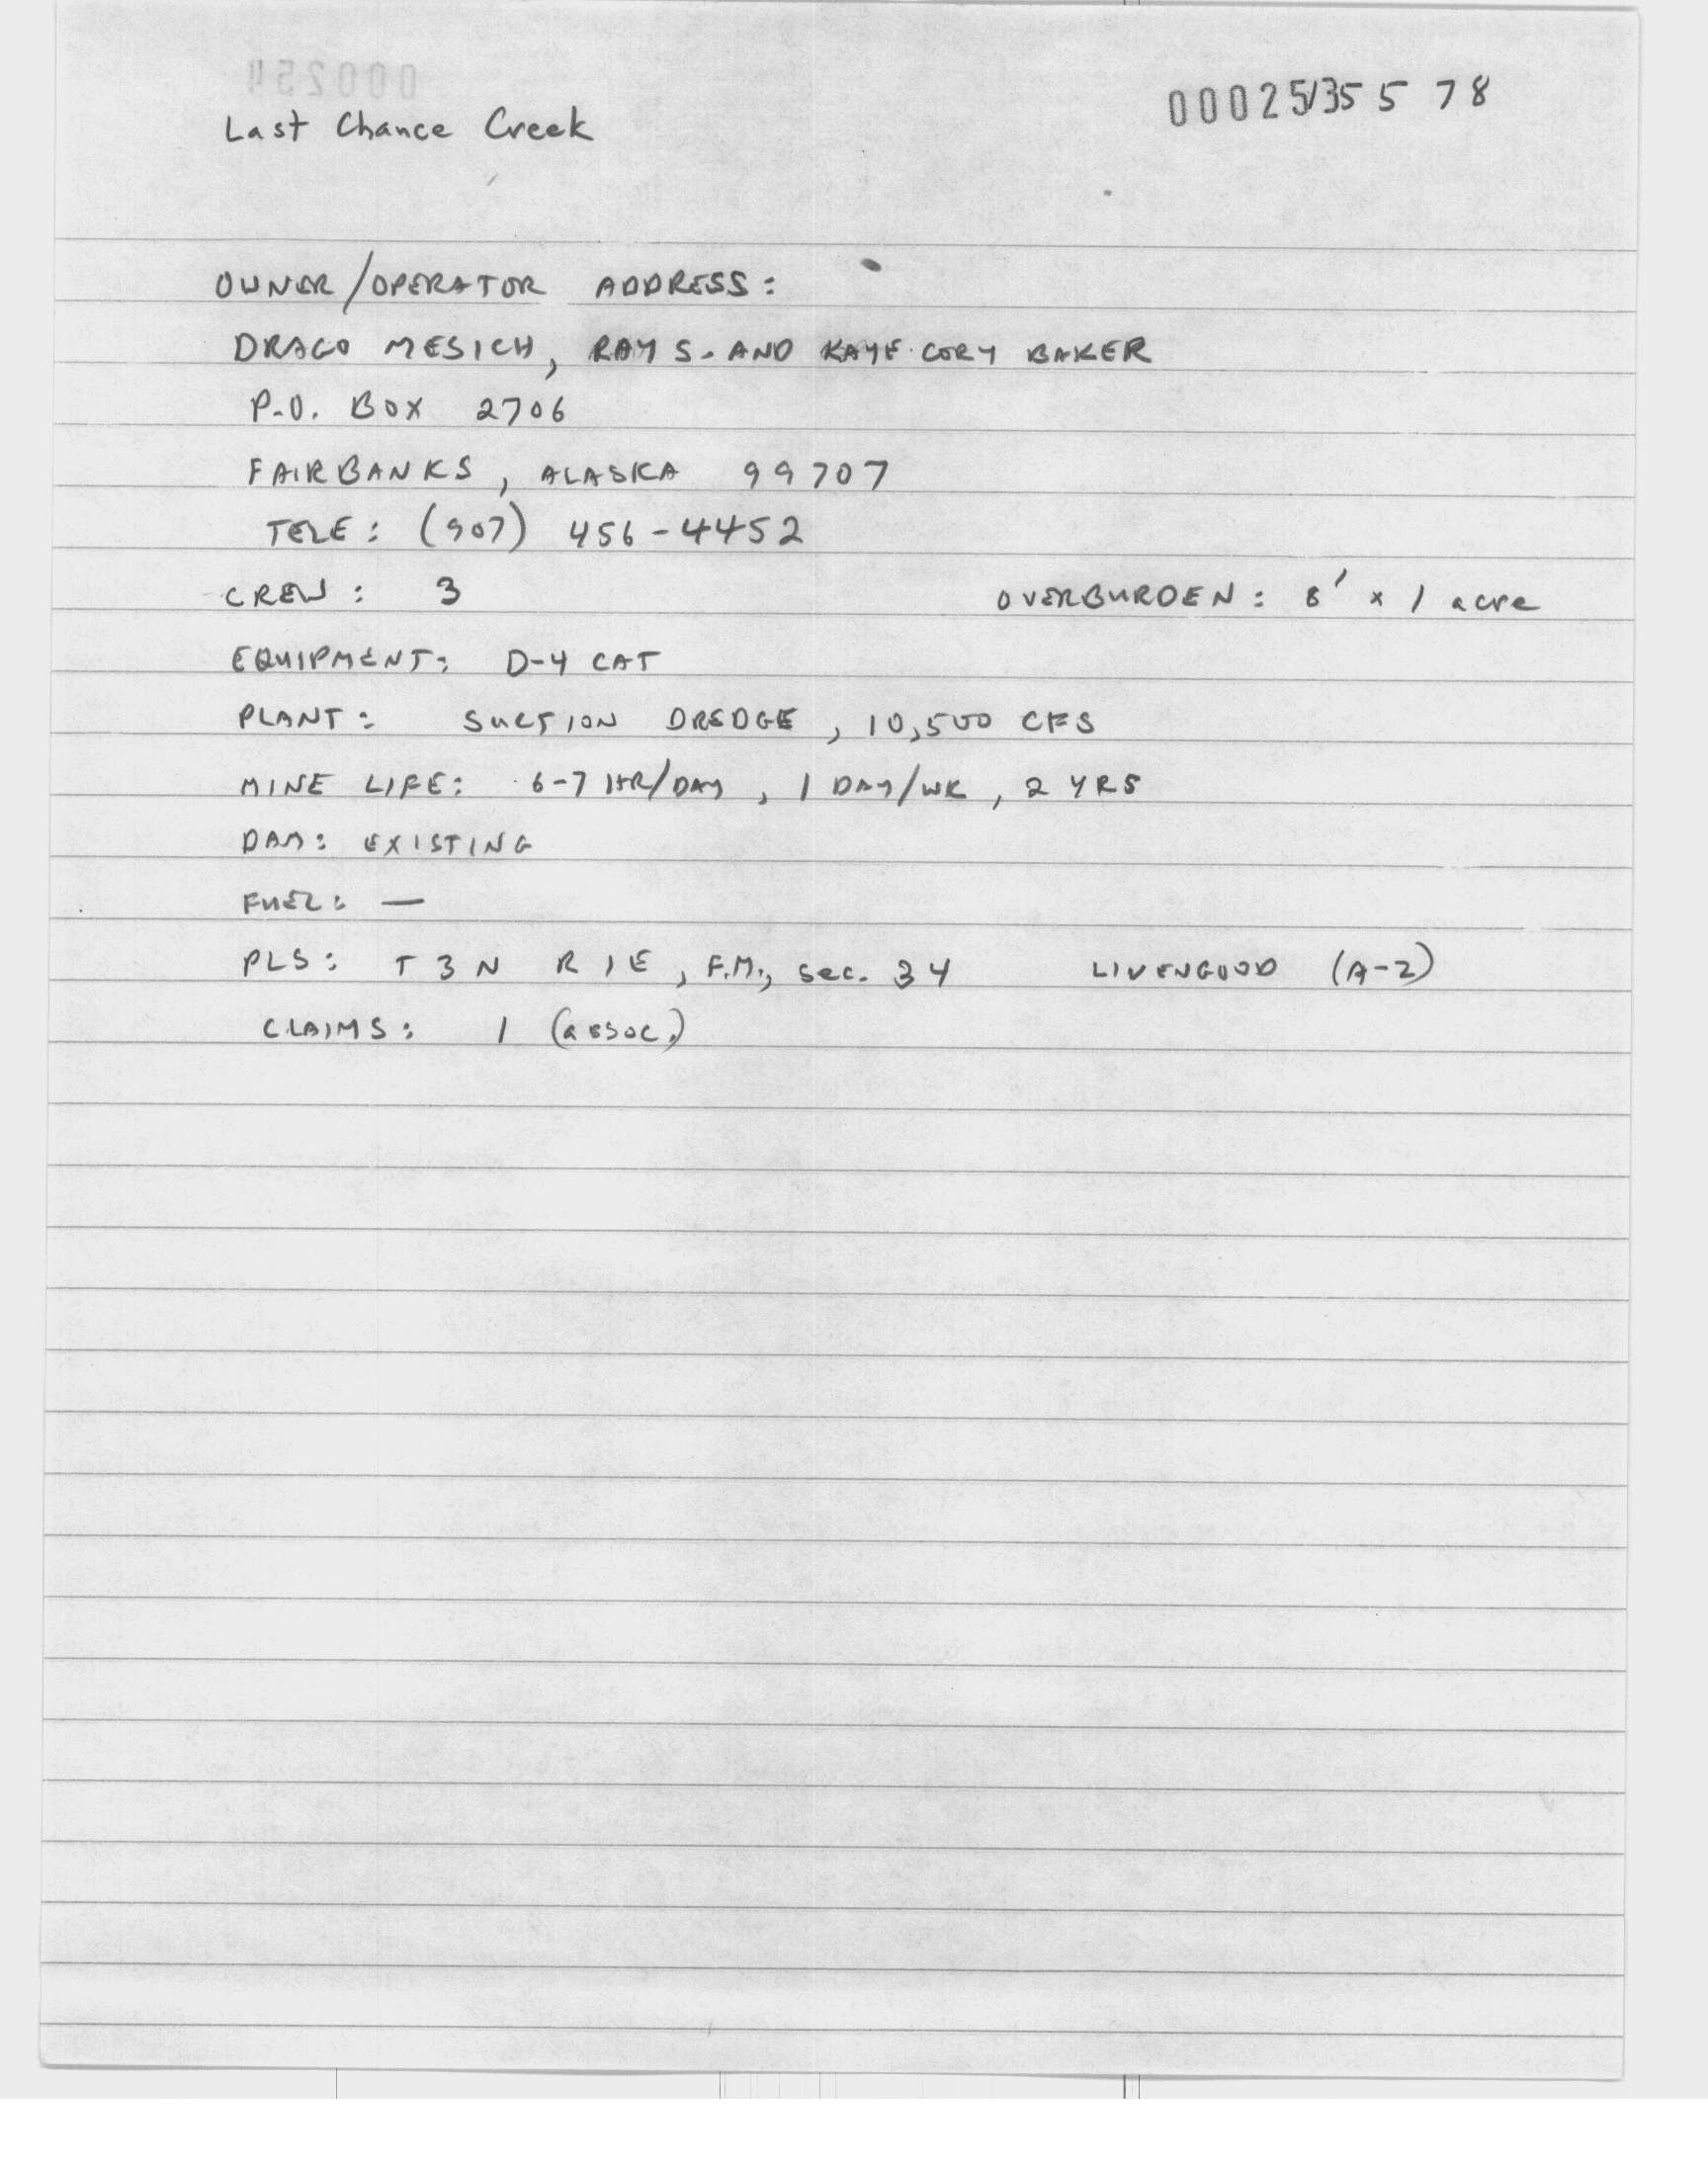 Last Chance Creek
OWNER/OPERATOR ADDRESS:
DRAGO MESICH, RAY S. AND KAYE CORY BAKER
P.O. BOX 2706
FAIRBANKS, ALASKA 99707
TELE: (907) 456-4452
CREW: 3 OVERBURDEN: 8' x 1 acre
EQUIPMENT: D-4 CAT
PLANT: SUCTION DREDGE, 10,500 CFS
MINE LIFE: 6-7 HR/DAY, 1 DAY/WK, 2 YRS
DAM: EXISTING
FUEL: —
PLS: T3N R1E, F.M., sec. 34 LIVENGOOD (A-2)
CLAIMS: 1 (assoc.)